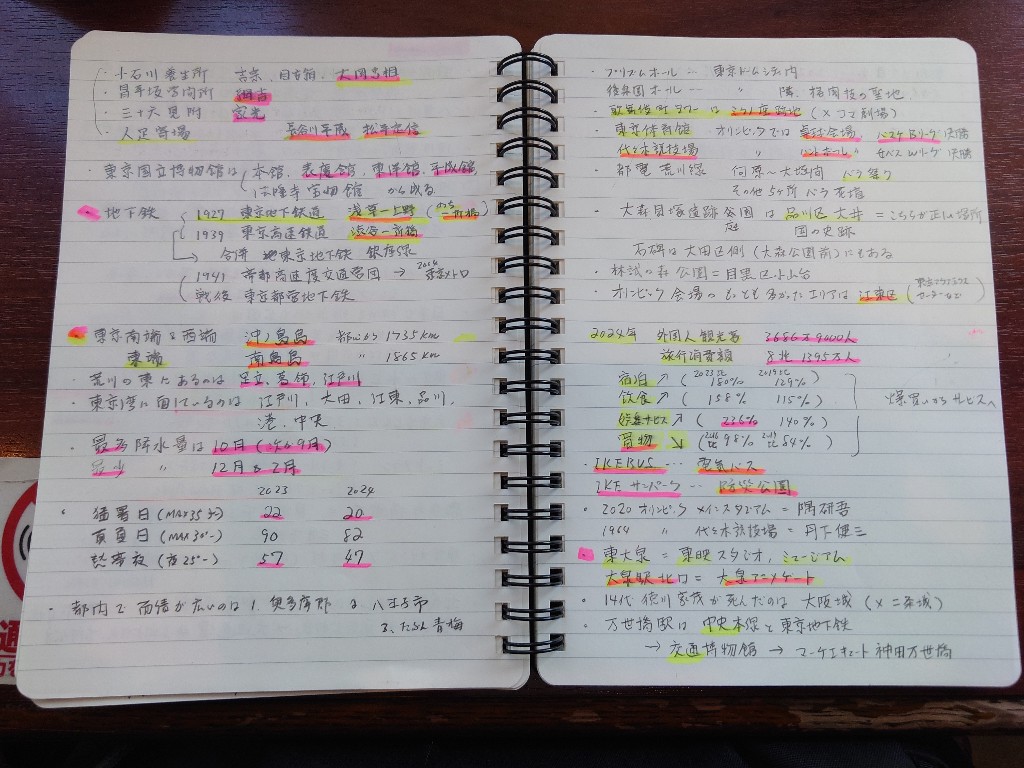 ・小石川養生所 吉宗、目安箱、大岡忠相
・昌平坂学問所 綱吉
・三十六見附 家光
・人足寄場 長谷川平蔵 松平定信
・東京国立博物館は 本館、表慶館、東洋館、平成館
法隆寺宝物館 から成る
・地下鉄 1927 東京地下鉄道 浅草ー上野 (のち ー新橋)
1939 東京高速鉄道 渋谷ー新橋
→ 合併 地東京地下鉄 銀座線
1941 帝都高速度交通営団 → 2004 東京メトロ
戦後 東京都営地下鉄
・東京南端&西端 沖ノ鳥島 都心から 1735km
東端 南鳥島 〃 1865km
・荒川の東にあるのは 足立、葛飾、江戸川
・東京湾に面しているのは 江戸川、大田、江東、品川、
港、中央
・最多降水量は10月(次は9月)
最少 〃 12月&2月
2023 2024
・猛暑日(MAX35〜) 22 20
真夏日(MAX30〜) 90 82
熱帯夜(夜25〜) 57 47
・都内で面積が広いのは 1. 奥多摩町 2 八王子市
3. たぶん青梅
・プリズムホール… 東京ドームシティ内
後楽園ホール… 〃 隣、格闘技の聖地
・歌舞伎町タワーは ミラノ座跡地 (×コマ劇場)
・東京体育館 オリンピックでは 卓球会場、バスケBリーグ決勝
代々木競技場 〃 ハンドボール〃 女バスWリーグ決勝
・都電荒川線 向原〜大塚間 バラ祭り
その他3ヶ所 バラ花壇
・大森貝塚遺跡公園 庭 は 品川区大井 = こちらが正しい場所
国の史跡
石碑は大田区側(大森公園前)にもある
・林試の森公園=目黒区小山台
・オリンピック会場のもっとも多かったエリアは 江東区 (東京アクアティクスセンターなど)
2024年 外国人観光客 3686万9000人
旅行消費額 8兆1395万人
宿泊 ↗ (2023比 180% 2019比 129%)
飲食 ↗ (158% 115%)
娯楽サービス ↗ (236% 140%) 爆買いからサービスへ
買物 ↘ (98% 84%)
・IKEBUS … 電気バス
IKEサンパーク … 防災公園
・2020 オリンピック メインスタジアム = 隈研吾
1964 〃 代々木競技場 = 丹下健三
・東大泉 = 東映スタジオ、ミュージアム
大泉駅北口 = 大泉アニメゲート
・14代徳川家茂が死んだのは 大阪城 (×二条城)
・万世橋駅は 中央本線と東京地下鉄
→ 交通博物館 → マーチエキュート神田万世橋